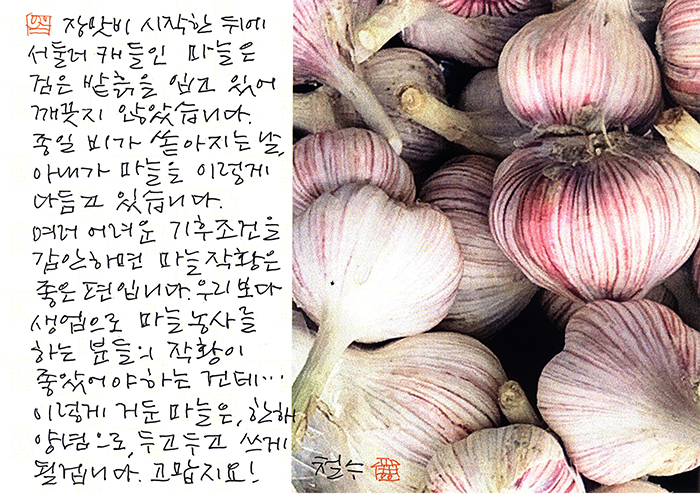 장맛비 시작한 뒤에
서둘러 캐들인 마늘은
검은 밭흙을 입고 있어
깨끗지 않았습니다.
종일 비가 쏟아지는 날,
아내가 마늘을 이렇게
다듬고 있습니다.
여러 어려운 기후조건을
감안하면 마늘작황은
좋은 편입니다. 우리보다
생업으로 마늘농사를
하는 분들의 작황이
좋았어야하는 건데…
이렇게 거둔 마늘은, 한해
양념으로, 두고두고 쓰게
될겁니다. 고맙지요!
철수